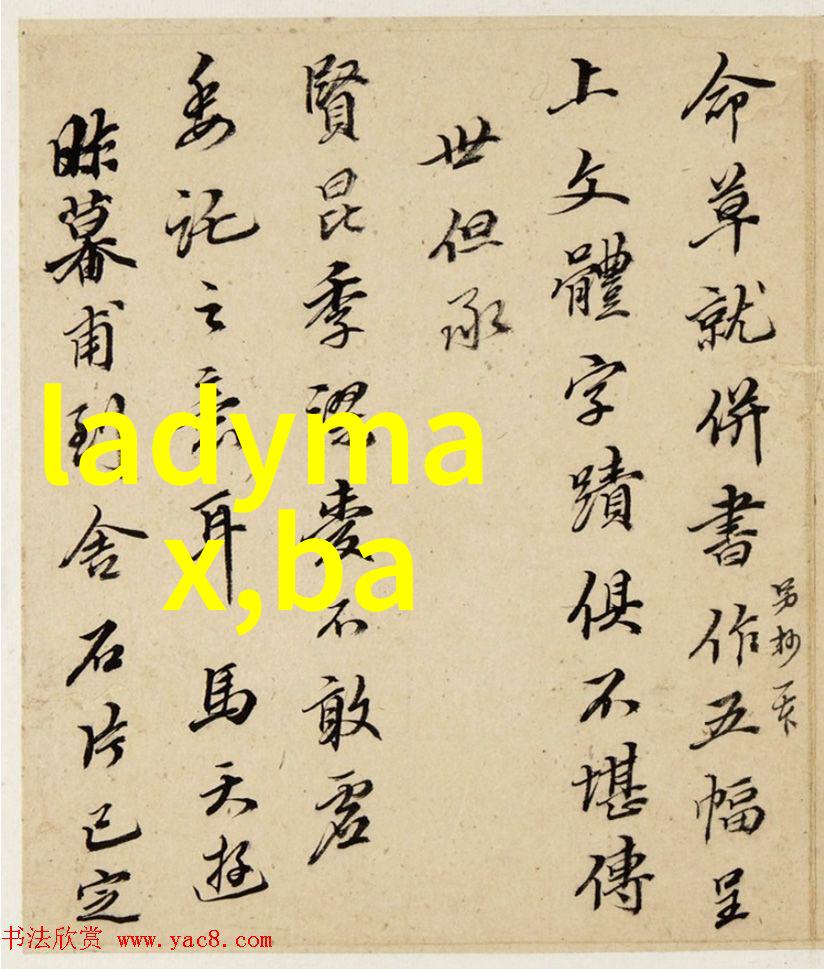 命草就併書作五幅呈
另抄一本
上文體字蹟俱不堪傳
世但承
賢昆季謬愛不敢虛
委託之意耳馬天游
昨暮甫到舍石片已定
ladyma
x,ba
书法欣赏 www.yac8.com